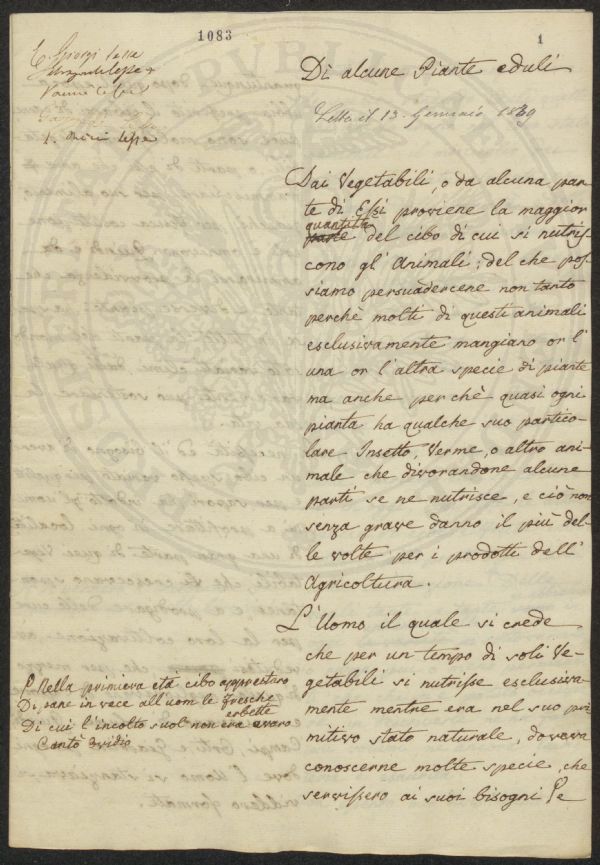 1083
1
Di alcune Piante eduli
Letta il 13. Gennaio 1839
Dai Vegetabili, o da alcuna par-
te di Essi proviene la maggior
quantità
parte del cibo di cui si nutris-
cono gl' Animali; del che pos-
siamo persuadercene non tanto
perchè molti di questi animali
esclusivamente mangiano or l'
una or l'altra specie di piante
ma anche perchè quasi ogni
pianta ha qualche suo partico-
lare Insetto, Verme, o altro ani-
male che divorandone alcune
parti se ne nutrisce, e ciò non
senza grave danno il più del-
le volte per i prodotti dell'
Agricoltura.
L'Uomo il quale si crede
che per un tempo di soli Ve-
getabili si nutrisse esclusiva-
mente mentre era nel suo pri
mitivo stato naturale, doveva
conoscerne molte specie, che
servissero ai suoi bisogni
Nella primiera età cibo apprestaro
Di pane in vece all'uom le fresche
erbette
Di cui l'incolto suol non era avaro
Cantò Ovidio